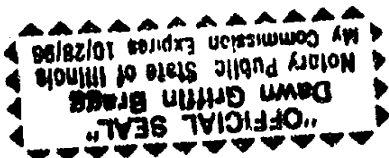 "OFFICIAL SEAL"
Dawn Griffin Bragg
Notary Public State of Illinois
My Commission Expires 10/28/96